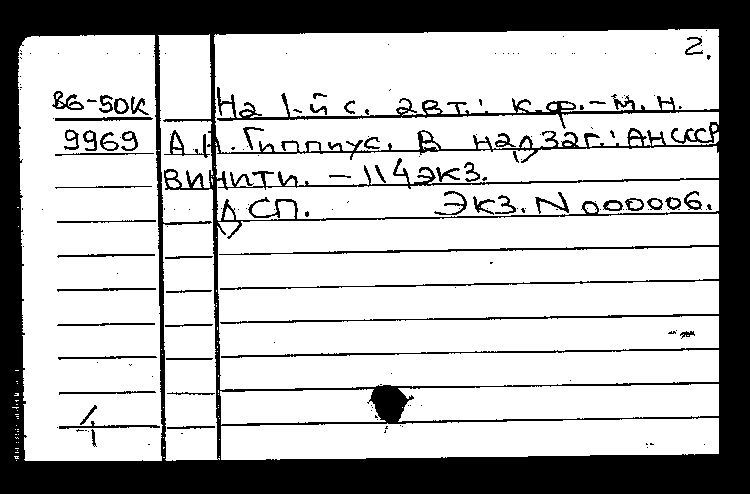 2.
В6-50К На 1-й с. авт.: к.ф.-м.н.
9969 А.Н. Гиппиус. В надзаг.: АН СССР,
ВИНИТИ. - 114 экз.
ДСП. Экз. N 000006.